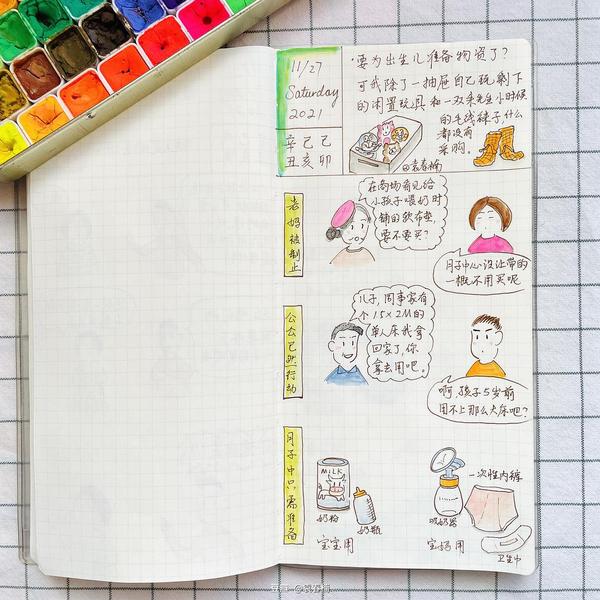 11/27
Saturday
2021
辛己己
丑亥卯
要为出生儿准备物资了？
可我除了一抽屉自己玩剩下
的闲置玩具和一双朱先生小时候
的毛线袜子什么
都没有
采购。
@袁春楠
老妈被制止
在商场看见给
小孩子喂奶时
铺的软布垫，
要不要买？
月子中心没让带的
一概不用买呢
公公已然行动
儿子，同事家有
个1.5×2M的
单人床我拿
回家了，你
拿去用吧。
啊，孩子5岁前
用不上那么大床吧？
月子中只需准备
MILK
奶粉
奶瓶
宝宝用
吸奶器
一次性内裤
宝妈用
卫生巾
豆瓣 @袁春楠